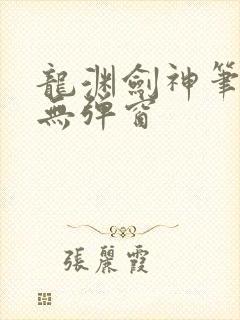 龍渊劍神筆
無彈窗
張麗霞